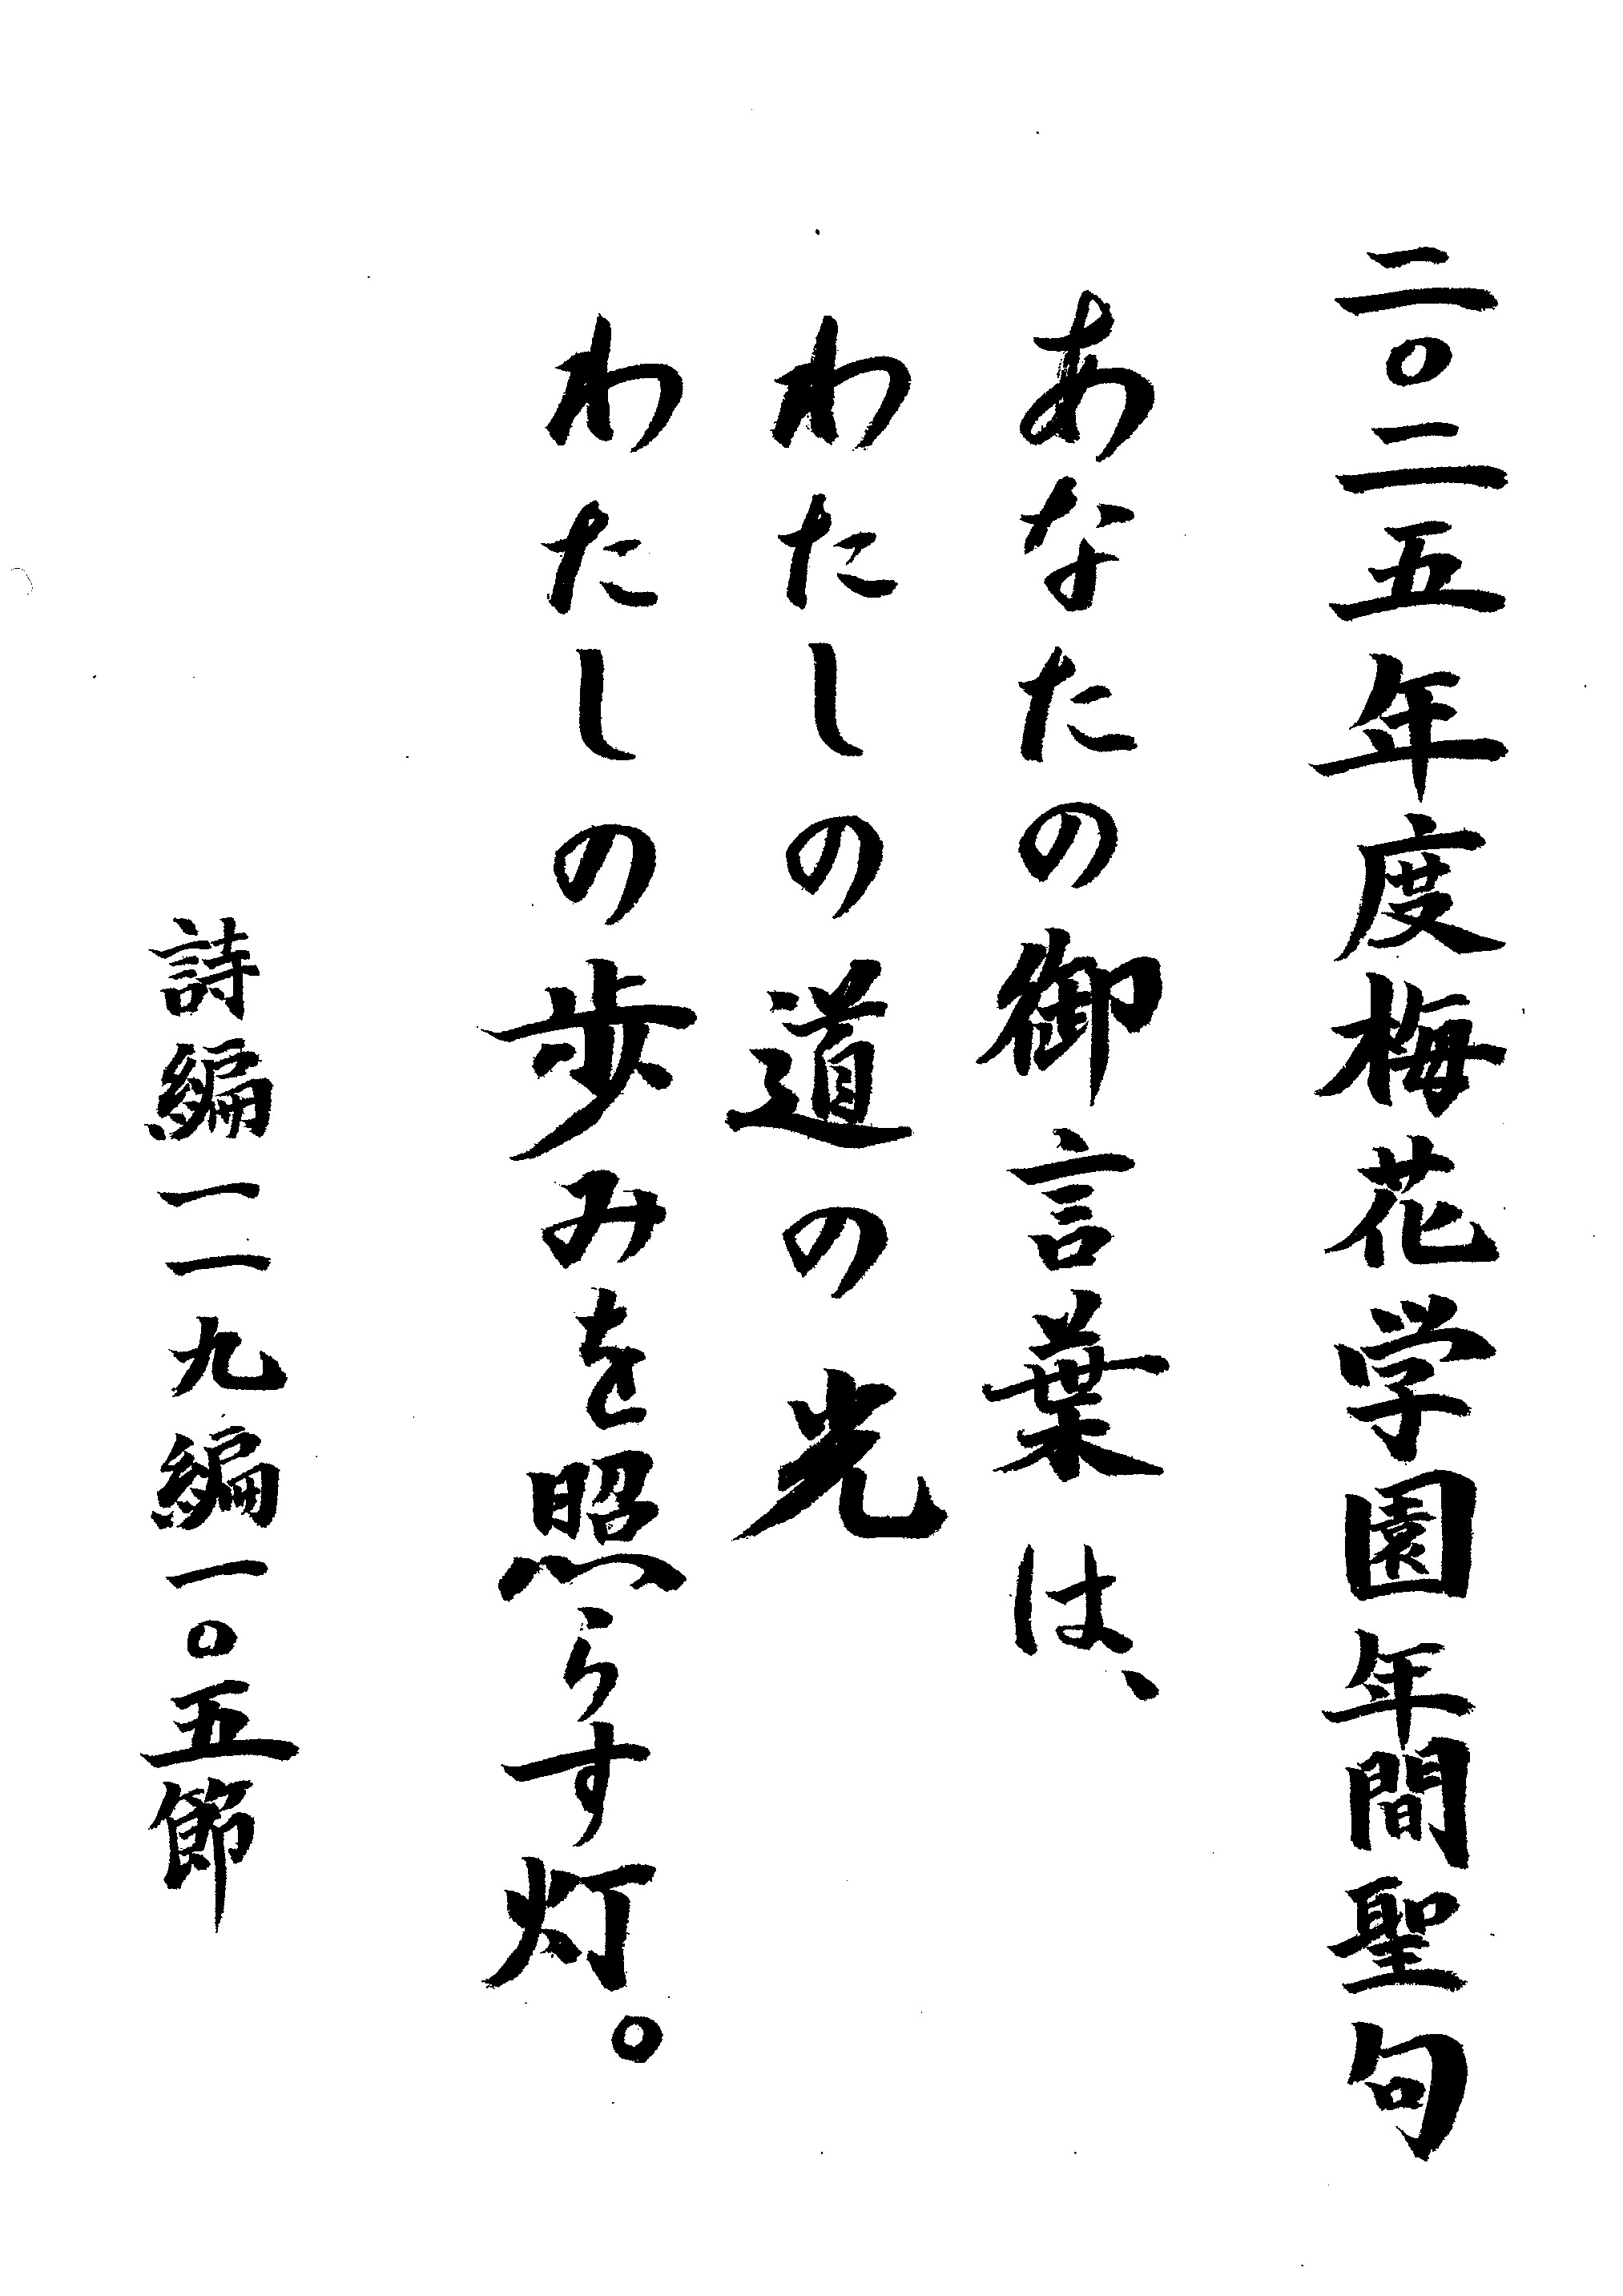 二〇二五年度梅花学園年間聖句
あなたの御言葉は、
わたしの道の光
わたしの歩みを照らす灯。
詩編一一九編一〇五節